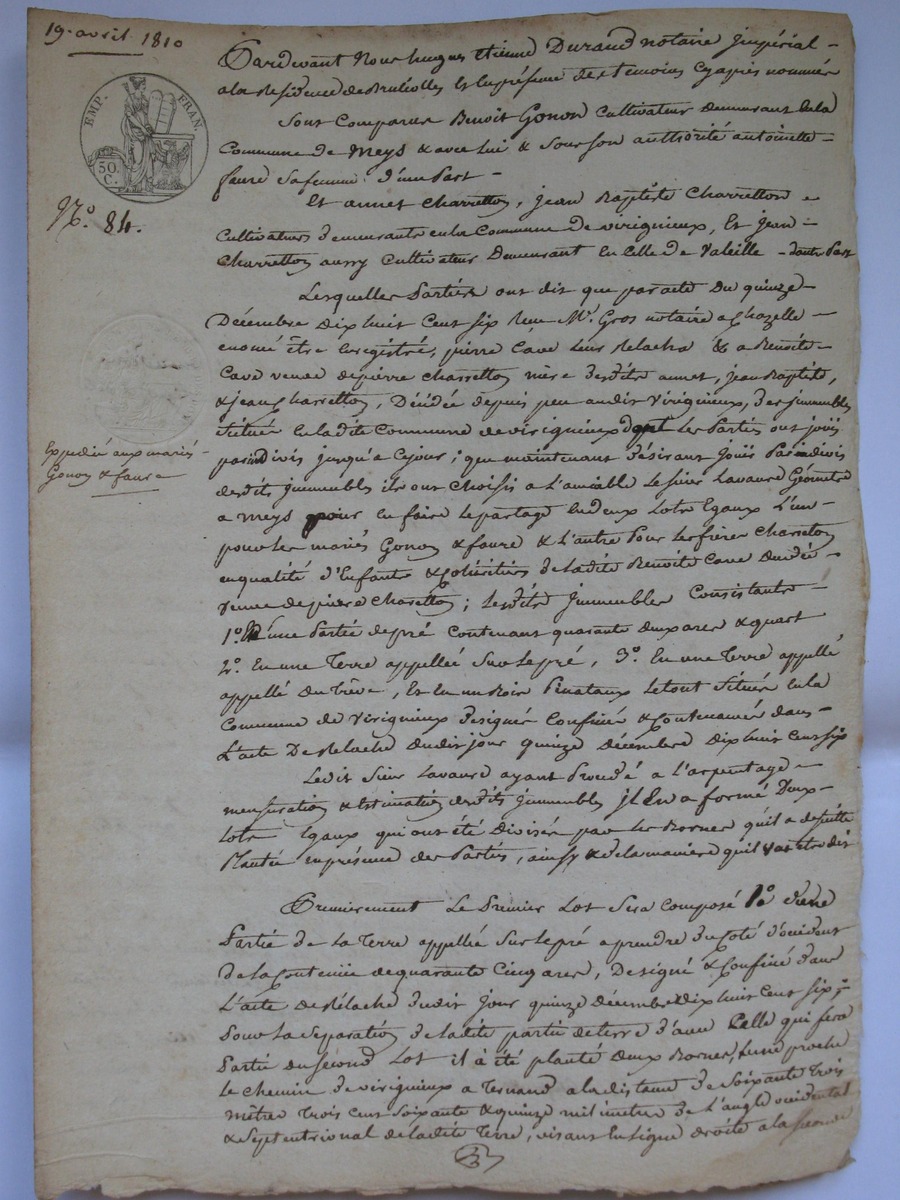 19. avril 1810
EMP. FRAN.
50.
C.
N.o 84.
Expedié aux mariés
Gonon & faure
Pardevant Nous hugues Etienne Durand notaire Jmpérial
a la Residence de Brullolles Et En présence des temoins Cy apres nommés
Sont Comparus Benoit Gonon Cultivateur demeurant En la
Commune de Meys & avec lui & Sous Son authorité antoinette
faure Sa femme d'une Part
Et annet Charretton, jean Baptiste Charretton
Cultivateurs demeurants en la Commune de virigneux, Et jean
Charretton aussy Cultivateur Demeurant En Celle de Valeille d'autre Part
Lesquelles Parties ont dit que par acte Du quinze
Décembre dix huit Cent Six Reçu Me. Gros notaire a Chazelle
enoncé être Enregistré, pierre Cave leur Relacha & a Benoite
Cave veuve de pierre Charretton mère desdits annet, jean Baptiste,
& jean Charretton, Décédée depuis peu audit Virigneux, des jmmeubles
Situés En ladite Commune de virigneux dont les Parties ont joüis
par indivis jusqu'a Ce jour; que maintenant désirant joüir Par indivis
desdits jmmeubles ils ont choisis a l'amiable le sieur Lavaure Géomètre
a Meys pour En faire le partage En deux Lots Egaux L'un
pour les mariés Gonon & faure & L'autre Pour les frères Charreton
en qualité d'Enfants & Cohéritiers de ladite Benoite Cave Quand vivait
veuve de pierre Charetton; lesdits Jmmeubles Consistants
1.o En une Partie de pré Contenant quarante deux ares & quart
2.o En une Terre appellée Sur le pré, 3.o En une Terre appellé
appellé du Trève, Et En un Bois Pinataux le tout Situés En la
Commune de Virigneux désignés Confinés & Contenancés dans
L'acte De Relache dudit jour quinze décembre dix huit cent six
Ledit Sieur Lavaure ayant Procédé a l'arpentage
mensuration & Estimation desdits jmmeubles jl En a formé Deux
Lots Egaux qui ont été divisés par les Bornes qu'il a de suitte
Planté en présence des Parties, ainsy & de la manière qu'il va être dit
Premierement Le Premier Lot Sera Composé 1.o d'une
Partie de La Terre appellée Sur le pré a prendre du Coté d'occident
de la Contenue de quarante Cinq ares, Designé & Confiné dans
L'acte de Relache dudit jour quinze décembre dix huit cent six;
pour la Separation de ladite partie de terre d'avec Celle qui fera
Partie du second Lot il a été planté deux Bornes, L'une proche
le chemin de virigneux a Ternand a la distance de Soixante Trois
mètres Trois cent Soixante & quinze milimètres de L'angle occidental
& Septentrional de ladite Terre, visant En ligne droite a la seconde